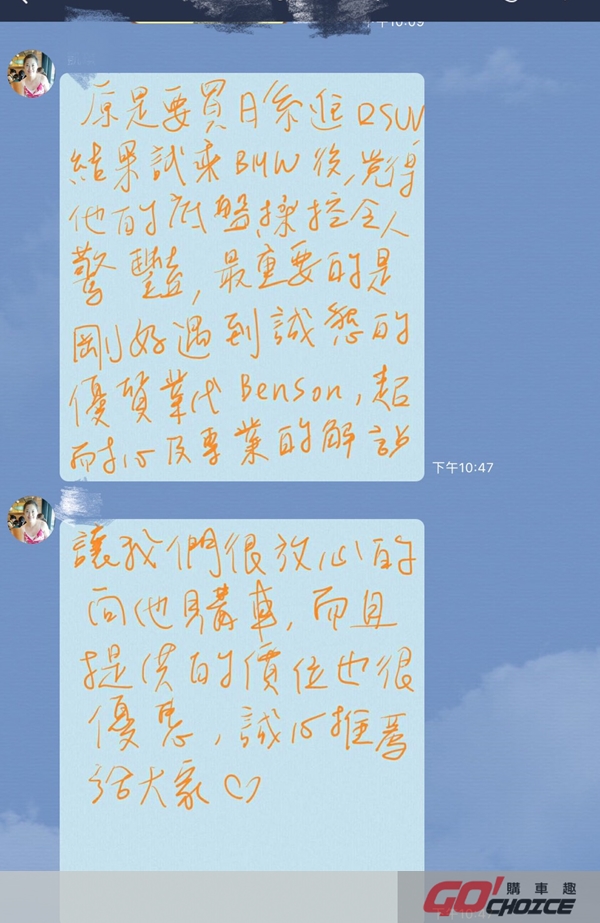 下午10:09
原是要買日系進口SUV
結果試乘BMW後,覺得
他的底盤操控令人
驚豔,最重要的是
剛好遇到誠懇的
優質業代Benson,超
耐心及專業的解說
下午10:47
讓我們很放心的
向他購車,而且
提供的價位也很
優惠,誠心推薦
給大家♡
GO! 購車趣
CHOICE